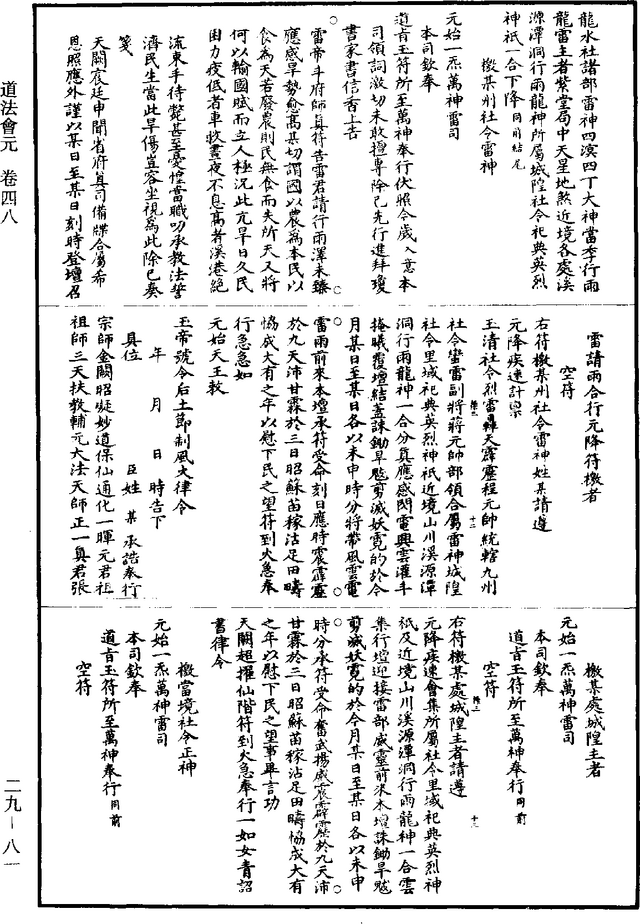 龍水社諸部雷神四溟四丁大神當季行雨
龍雷主者紫堂局中天星地煞近境各處溪
源潭洞行雨龍神所屬城隍社令祀典英烈
神祇一合下降同前結尾
檄某州社令雷神
元始一炁萬神雷司
本司欽奉
道旨玉符所至萬神奉行伏照今歲入意本
司領詞激切未敢擅專除已先行進拜瓊
書家書信香上告
雷帝斗府師真符告雷君請行雨澤未臻
應感旱勢愈高某切謂國以農為本民以
食為天若廢農則民無食而失所天又將
何以輸國賦而立人極況此亢旱日久民
田力疲低者車救晝夜不息高者溪港絕
流束手待斃甚至憂惶當職叨承教法誓
濟民生當此旱傷豈容坐視為此除已奏
箋
天闕宸廷申聞省府真司備牒合屬希
恩照應外謹以某日至某日刻時登壇召
雷請雨合行元降符檄者
空符
右符檄某州社令雷神姓某請遵
元降疾速計稟
玉清社令烈雷轟天霹靂程元帥統轄九州
社令蠻雷副將蔣元帥部領合屬雷神城隍
社令里域祀典英烈神祇近境山川溪源潭
洞行雨龍神一合分真應感閃電興雲灌斗
掩曦覆壇結蓋誅鋤旱魃剪滅妖霓的於今
月某日至某日各以未申時分將帶風雲電
雷雨前來本壇承符受命刻日應時震霹靂
於九天沛甘霖於三日昭蘇苗稼沾足田疇
協成大有之年以慰下民之望符到火急奉
行急急如
元始天王敕
玉帝號令后土節制風火律令
年 月 日 時告下
具位 臣姓 某 承誥奉行
宗師金闕昭凝妙道保仙通化一暉元君祖
祖師三天扶教輔元大法天師正一真君張
檄某處城隍主者
元始一炁萬神雷司
本司欽奉
道旨玉符所至萬神奉行同前
空符
右符檄某處城隍主者請遵
元降疾速會集所屬社令里域祀典英烈神
祇及近境山川溪源潭洞行雨龍神一合雲
集行壇迎接雷部威靈前來本壇誅鋤旱魃
剪滅妖霓的於今月某日至某日各以未申
時分承符受命奮武揚威震霹靂於九天沛
甘霖於三日昭蘇苗稼沾足田疇協成大有
之年以慰下民之望事畢言功
天闕超擢仙階符到火急奉行一如女青詔
書律令
檄當境社令正神
元始一炁萬神雷司
本司欽奉
道旨玉符所至萬神奉行同前
空符
道法會元 卷四八
二九－八一